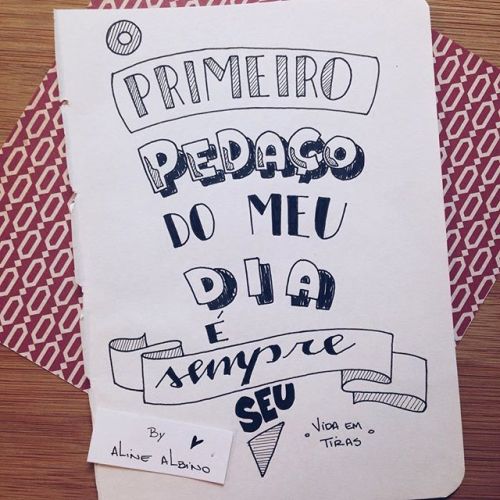 O
PRIMEIRO
PEDAÇO
DO MEU
DIA
É
sempre
SEU
By
ALINE ALBINO
VIDA EM
TIRAS